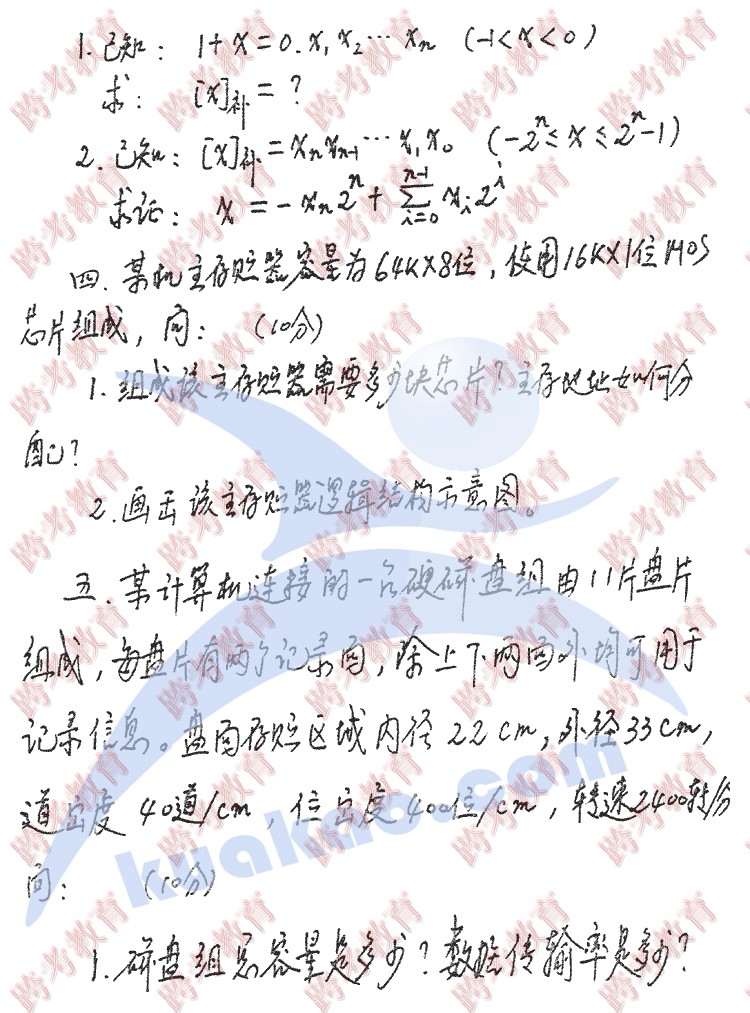 1. 已知： 1+x=0.x₁x₂⋯xₙ (-1<x<0)
求： [x]补=?
2. 已知：[x]补=xₙxₙ₋₁⋯x₁x₀ (-2ⁿ≤x≤2ⁿ-1)
求证： x=-xₙ2ⁿ+∑ⁿ⁻¹ᵢ₌₀xᵢ2ⁱ
四. 某机主存贮器容量为64K×8位，使用16K×1位MOS
芯片组成，问： (10分)
1. 组成该主存贮器需要多少块芯片？主存地址如何分
配？
2. 画出该主存贮器逻辑结构示意图。
五. 某计算机连接的一台硬磁盘组由11片盘片
组成，每盘片有两个记录面，除上下两面外均可用于
记录信息。盘面存贮区域内径22cm，外径33cm，
道密度 40道/cm，位密度400位/cm，转速2400转/分
问： (10分)
1. 磁盘组总容量是多少？数据传输率是多少？
跨考教育
kuakao.com